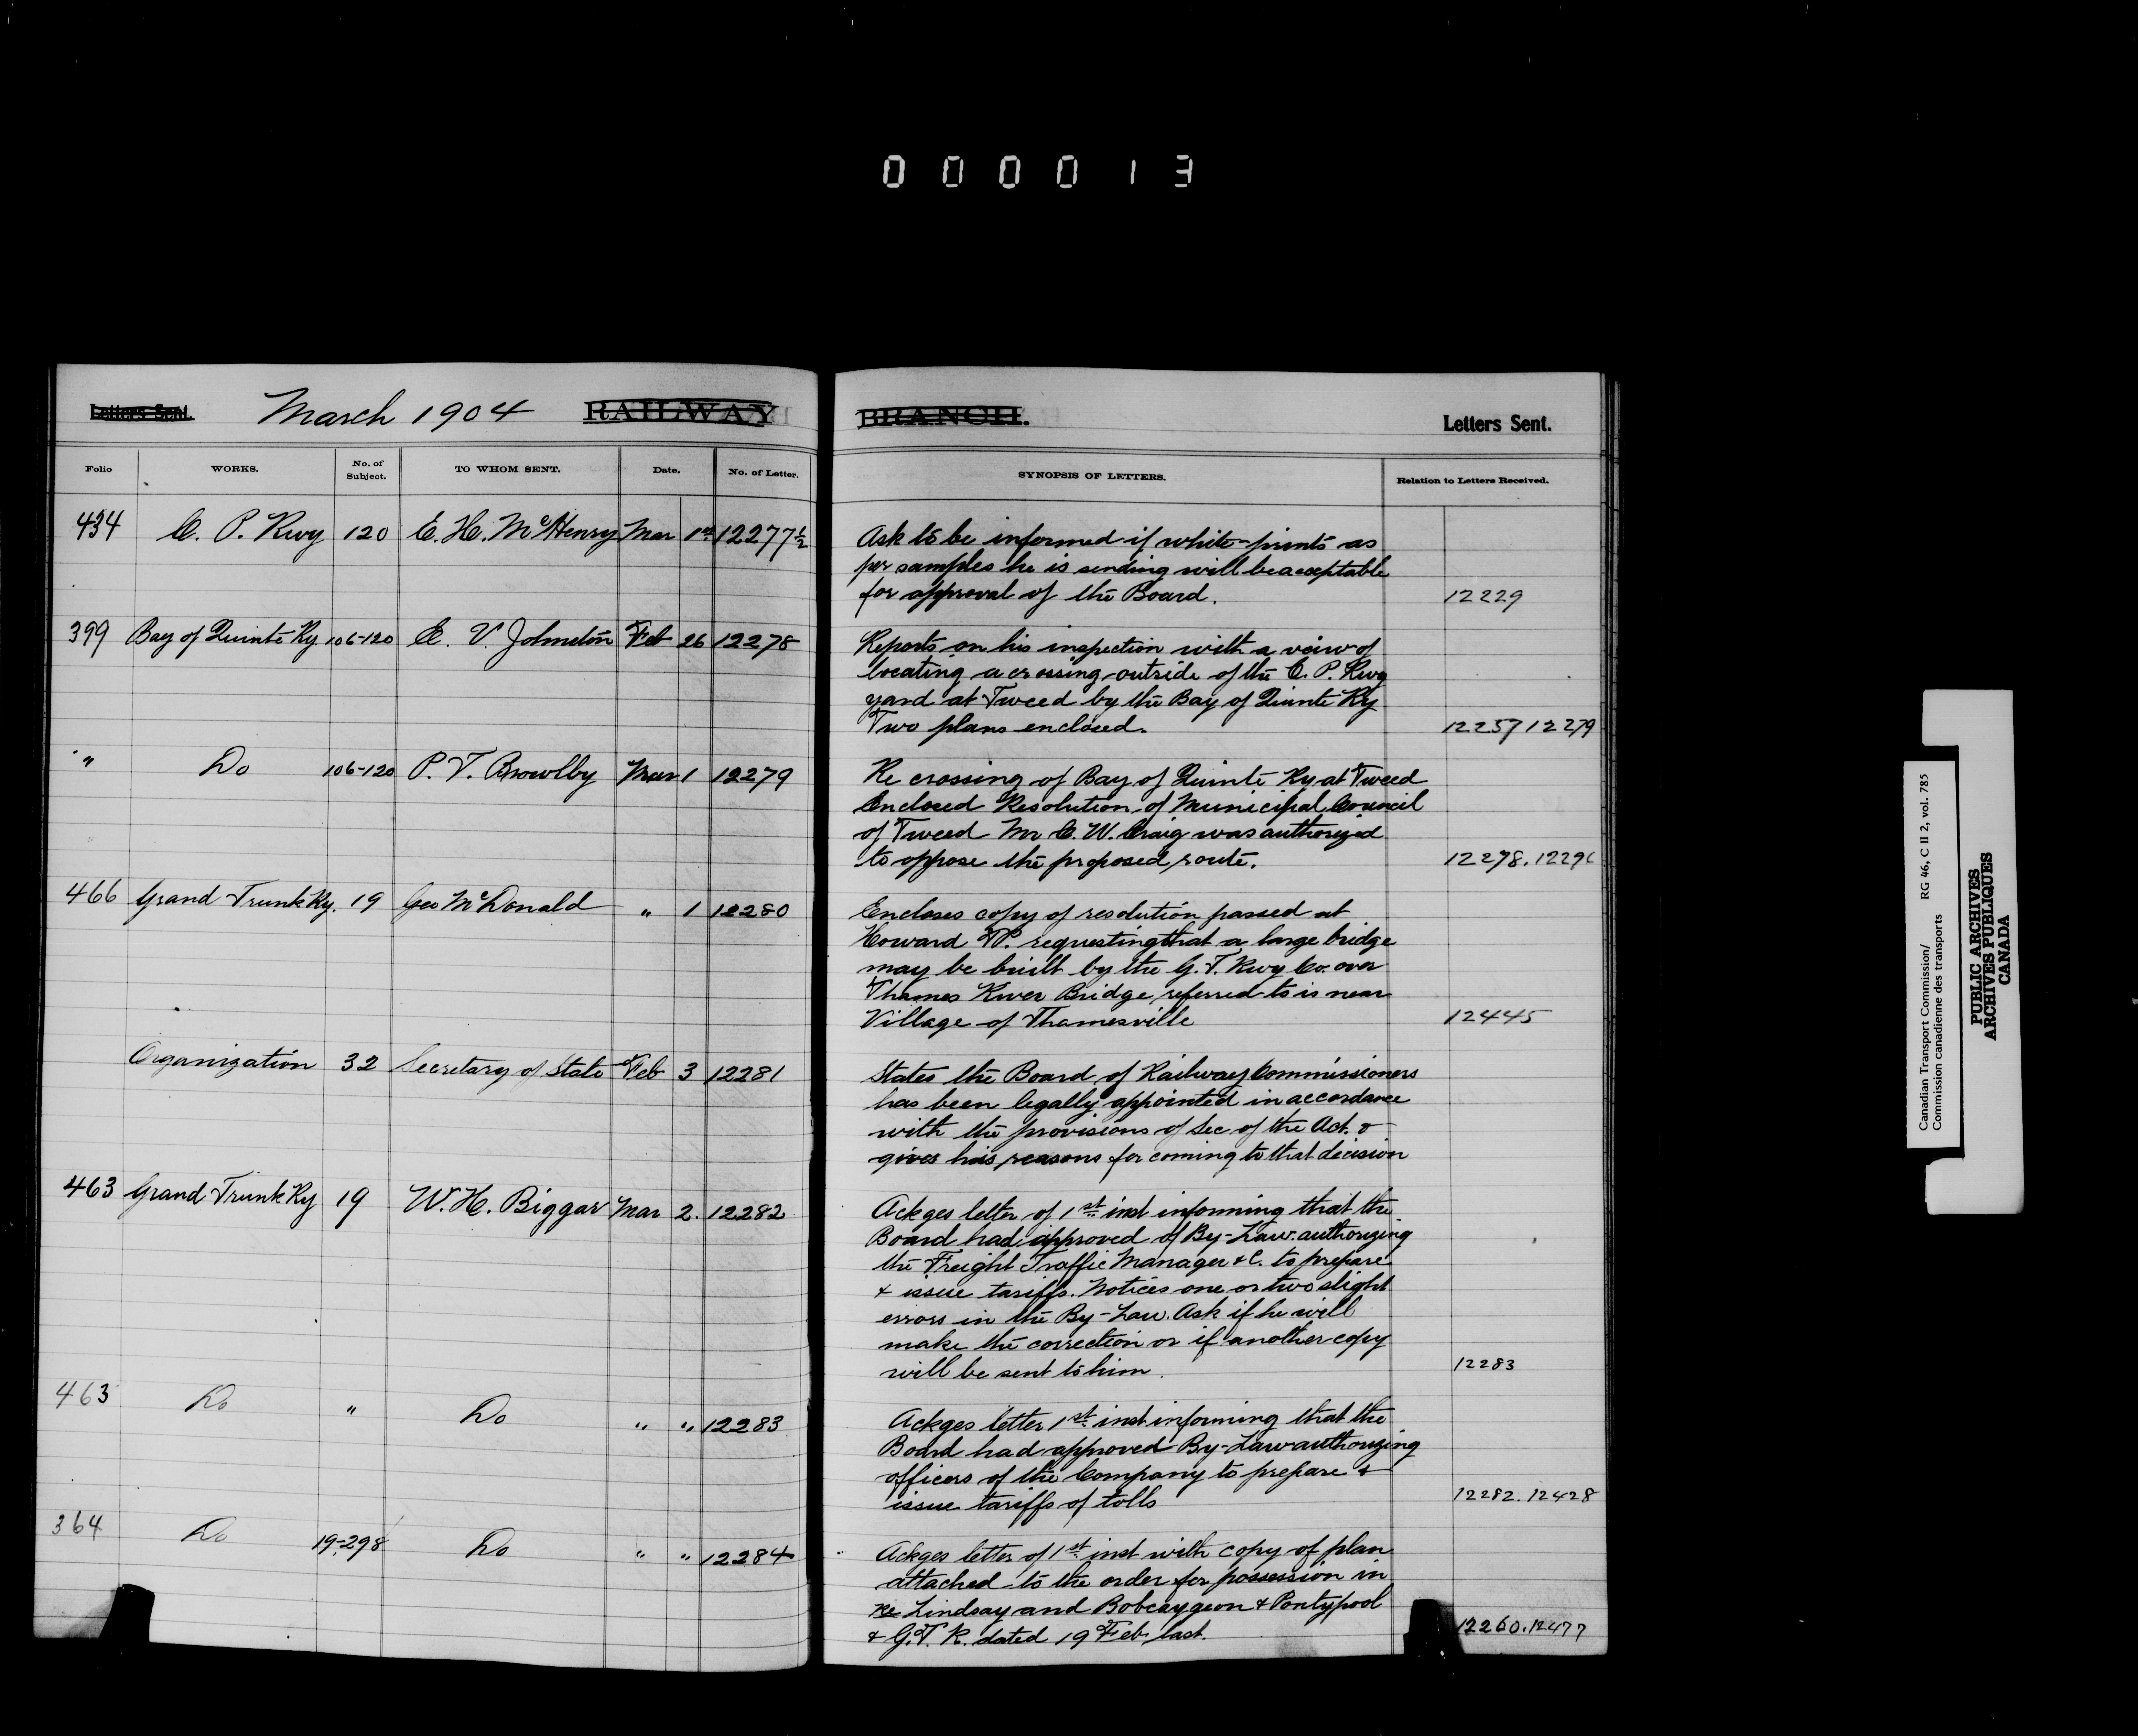 0 0 0 0 1 3
Letters Sent. March 1904 RAILWAY BRANCH. Letters Sent.
Folio WORKS. No. of Subject. TO WHOM SENT. Date. No. of Letter. SYNOPSIS OF LETTERS. Relation to Letters Received.
434 C. P. Rwy 120 E. H. McHenry Mar 1st 12277½ Ask to be informed if white-prints as
per samples he is sending will be acceptable
for approval of the Board. 12229
399 Bay of Quinte Ry. 106-120 E. V. Johnston Feb 26 12278 Reports on his inspection with a veiw of
locating a crossing outside of the C. P. Rwy
yard at Tweed by the Bay of Quinte Ry
Two plans enclosed. 12257 12279
" Do 106-120 P. T. Bowlby Mar 1 12279 Re crossing of Bay of Quinte Ry at Tweed
Enclosed Resolution of Municipal Council
of Tweed Mr C. W. Craig was authorized
to oppose the proposed route. 12278. 1229
466 Grand Trunk Ry. 19 Geo McDonald " 1 12280 Encloses copy of resolution passed at
Howard TP. requesting that a large bridge
may be built by the G. T. Rwy Co. over
Thames River Bridge referred to is near
Village of Thamesville 12445
Organization 32 Secretary of State Feb 3 12281 States the Board of Railway Commissioners
has been legally appointed in accordance
with the provisions of Sec. of the Act. &
gives his reasons for coming to that decision
463 Grand Trunk Ry 19 W. H. Biggar Mar 2. 12282 Ackges letter of 1st inst informing that the
Board had approved of By-Law authorizing
the Freight Traffic Manager &C. to prepare
& issue tariffs. Notices one or two slight
errors in the By-Law. Ask if he will
make the correction or if another copy
will be sent to him. 12283
463 Do " Do " " 12283 Ackges letter 1st inst informing that the
Board had approved By-Law authorizing
officers of the Company to prepare &
issue tariffs of tolls 12282. 12428
364 Do 19-298 Do " " 12284 Ackges letter of 1st inst with copy of plan
attached to the order for possession in
re Lindsay and Bobcaygeon & Pontypool
& G. T. R. dated 19 Feb. last. 12260. 12477
Canadian Transport Commission/ RG 46, C II 2, vol. 785
Commission canadienne des transports
PUBLIC ARCHIVES
ARCHIVES PUBLIQUES
CANADA